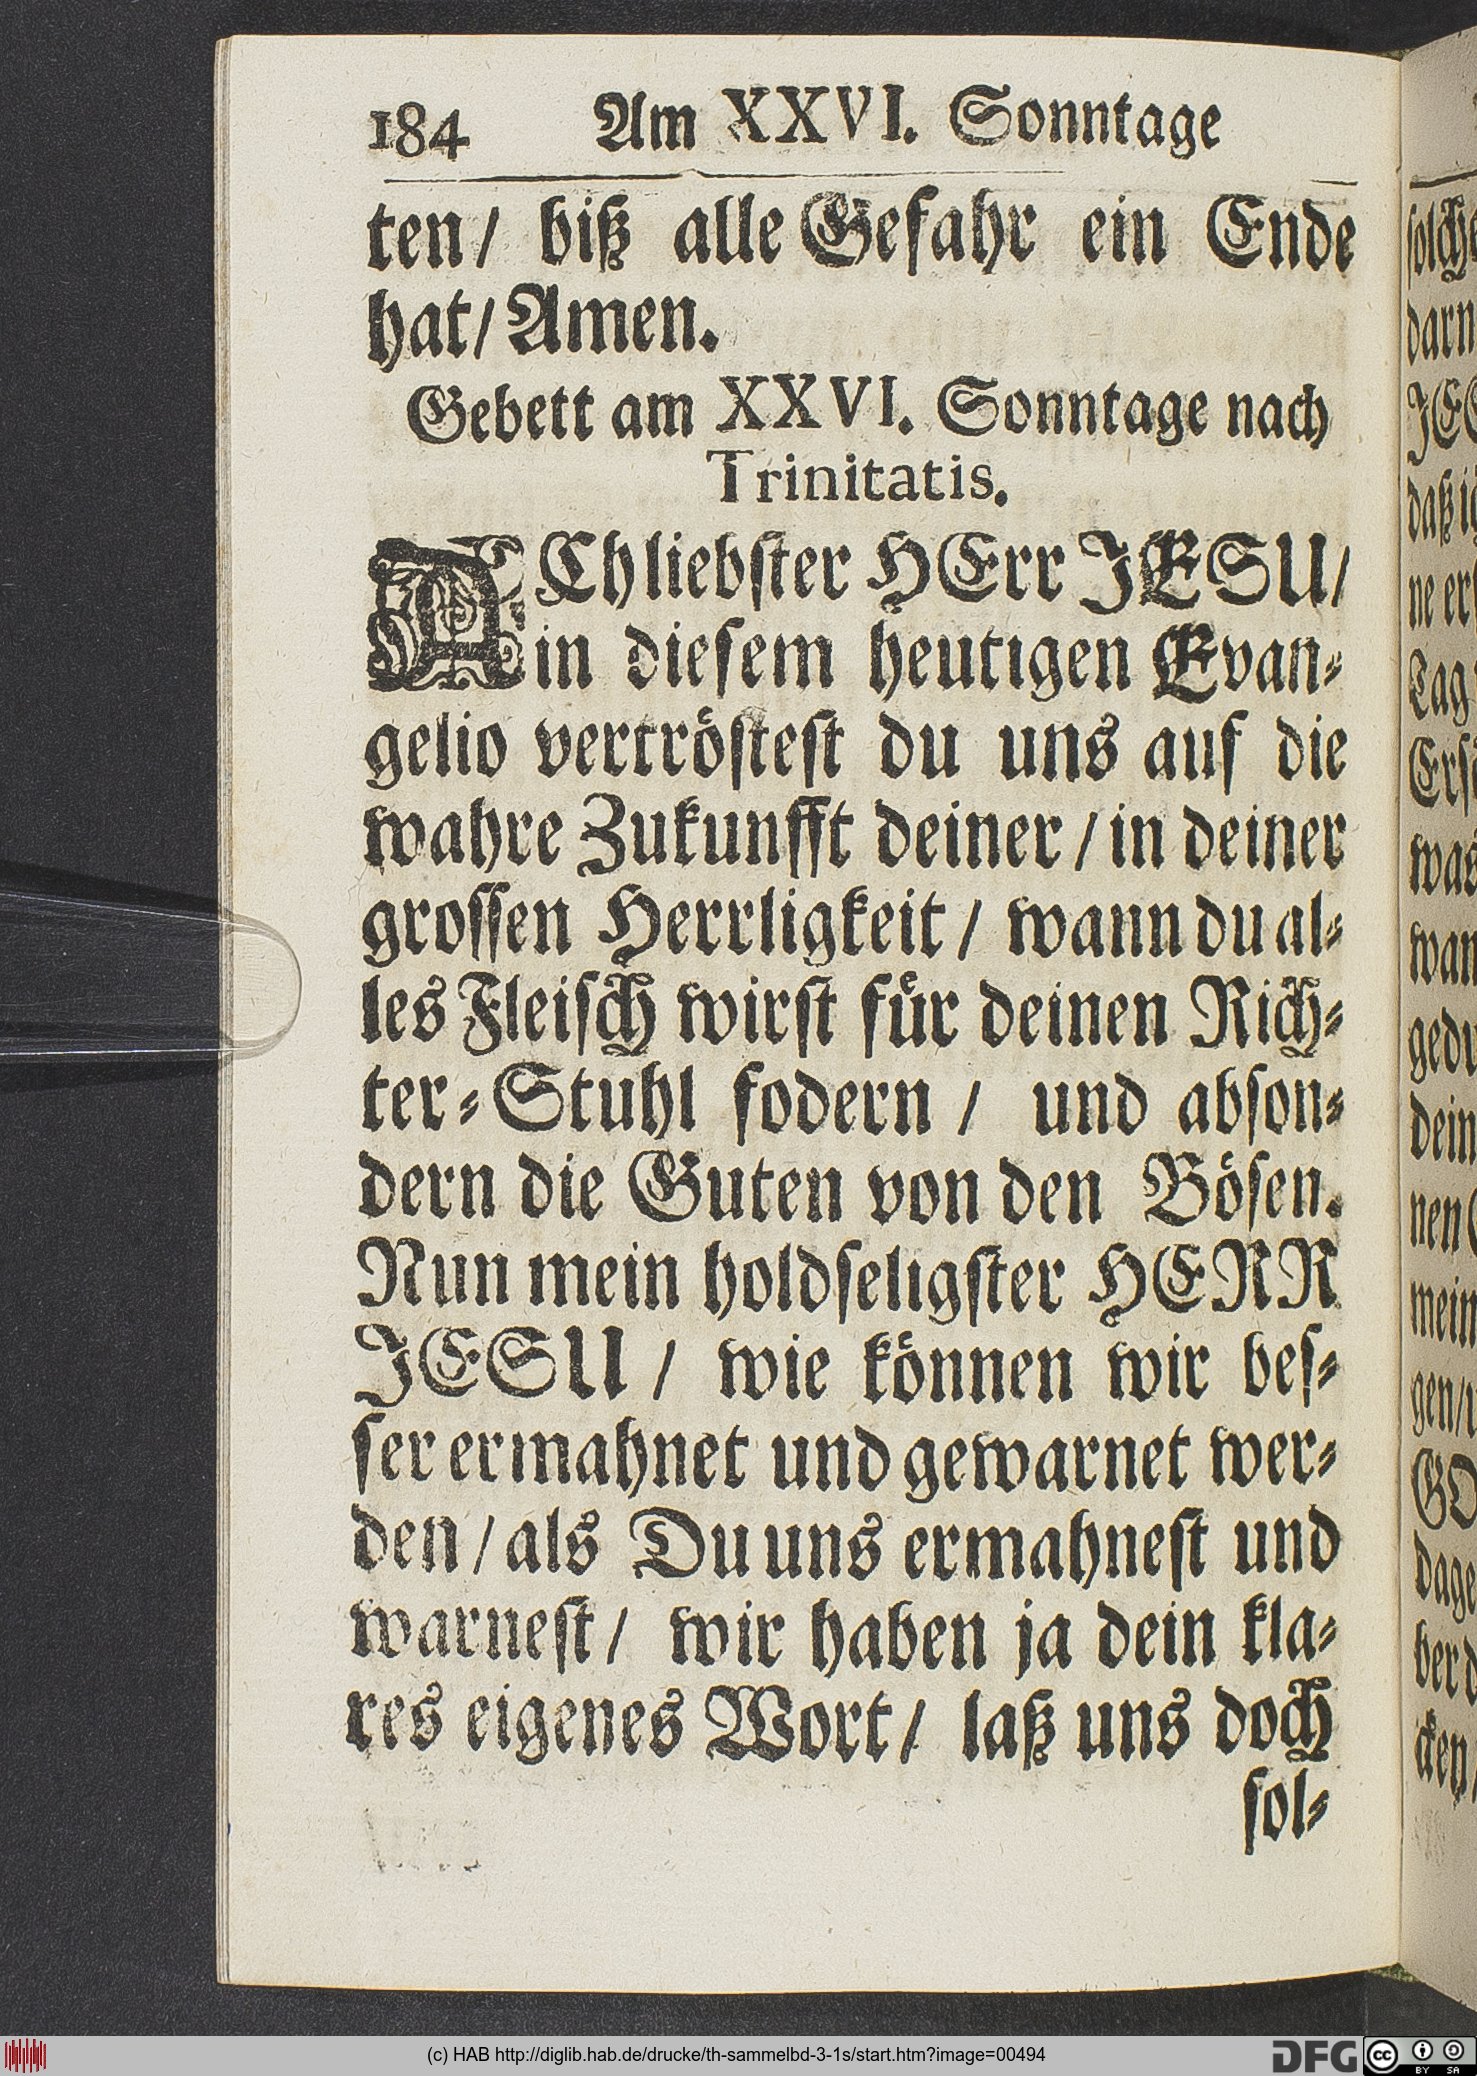 184 Am XXVI. Sonntage
ten/ biß alle Gefahr ein Ende
hat/ Amen.
Gebett am XXVI. Sonntage nach
Trinitatis.
ACh liebster HErr JESU/
in diesem heutigen Evan-
gelio vertröstest du uns auf die
wahre Zukunfft deiner / in deiner
grossen Herrligkeit / wann du al-
les Fleisch wirst für deinen Rich-
ter-Stuhl fodern / und abson-
dern die Guten von den Bösen.
Nun mein holdseligster HERR
JESU / wie können wir bes-
ser ermahnet und gewarnet wer-
den / als Du uns ermahnest und
warnest / wir haben ja dein kla-
res eigenes Wort / laß uns doch
sol-
(c) HAB http://diglib.hab.de/drucke/th-sammelbd-3-1s/start.htm?image=00494
DFG cc BY SA